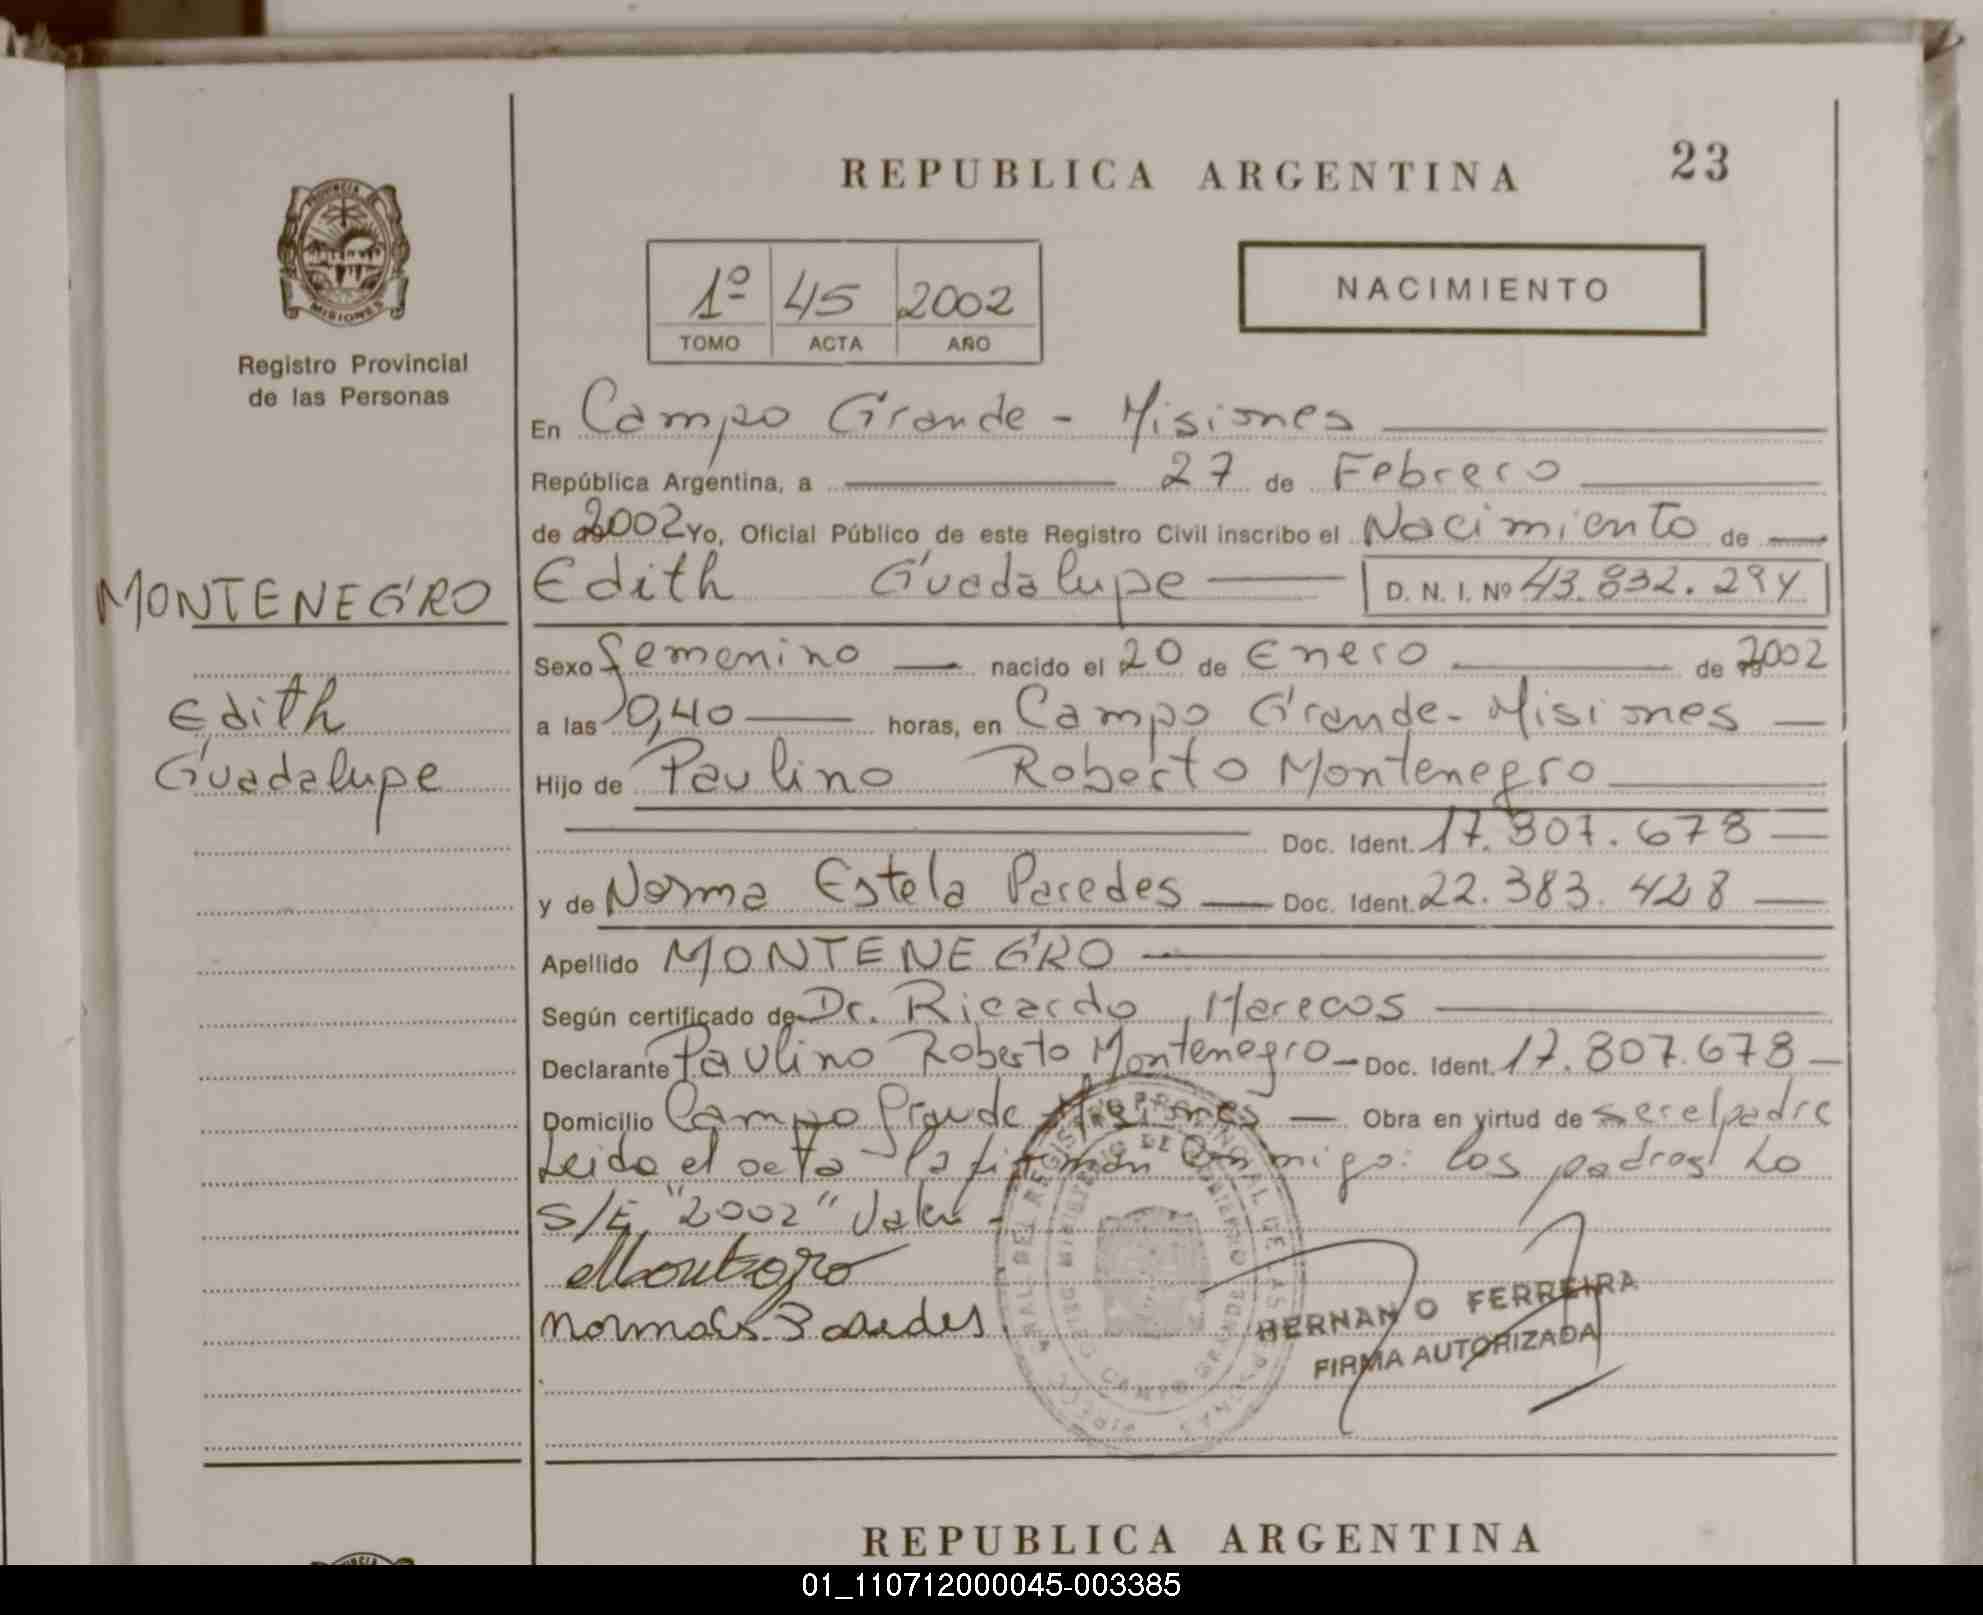 REPUBLICA ARGENTINA 23
PROVINCIA DE
MISIONES
Registro Provincial
de las Personas
1º 45 2002
TOMO ACTA AÑO
NACIMIENTO
En Campo Grande - Misiones
República Argentina, a 27 de Febrero
de 2002 Yo, Oficial Público de este Registro Civil inscribo el Nacimiento de
MONTENEGRO
Edith Guadalupe D. N. I. Nº 43.832.294
Sexo femenino nacido el 20 de Enero de 2002
Edith
a las 0,40 horas, en Campo Grande - Misiones
Guadalupe
Hijo de Paulino Roberto Montenegro
Doc. Ident. 17.807.678
y de Norma Estela Paredes Doc. Ident. 22.383.428
Apellido MONTENEGRO
Según certificado de Dr. Ricardo Marecos
Declarante Paulino Roberto Montenegro - Doc. Ident. 17.807.678
Domicilio Campo Grande - Misiones Obra en virtud de ser el padre
Leida el acta la firman conmigo: los padres Lo
S/E "2002" Vale -
HERNAN O FERREIRA
FIRMA AUTORIZADA
REPUBLICA ARGENTINA
01_110712000045-003385